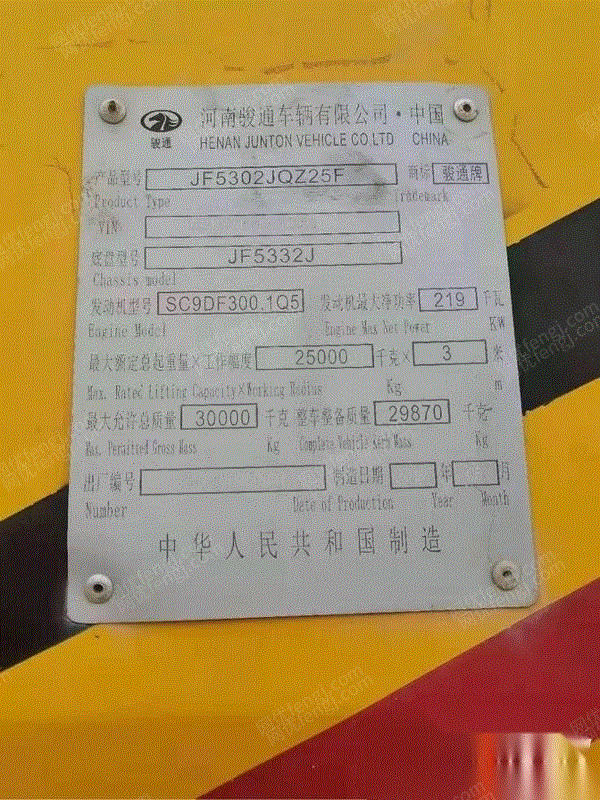 河南骏通车辆有限公司·中国
骏通 HENAN JUNTON VEHICLE CO.LTD CHINA
产品型号 JF5302JQZ25F 商标 骏通牌
Product Type Trademark
VIN
底盘型号 JF5332J
Chassis model
发动机型号 SC9DF300.1Q5 发动机最大净功率 219 千瓦
Engine Model Engine Max Net Power KW
最大额定总起重量×工作幅度 25000 千克× 3 米
Max. Rated Lifting Capacity×Working Radius Kg m
最大允许总质量 30000 千克 整车整备质量 29870 千克
Max. Permitted Gross Mass Kg Complete Vehicle Kerb Mass Kg
出厂编号 制造日期 年 月
Number Date of Production Year Month
中华人民共和国制造